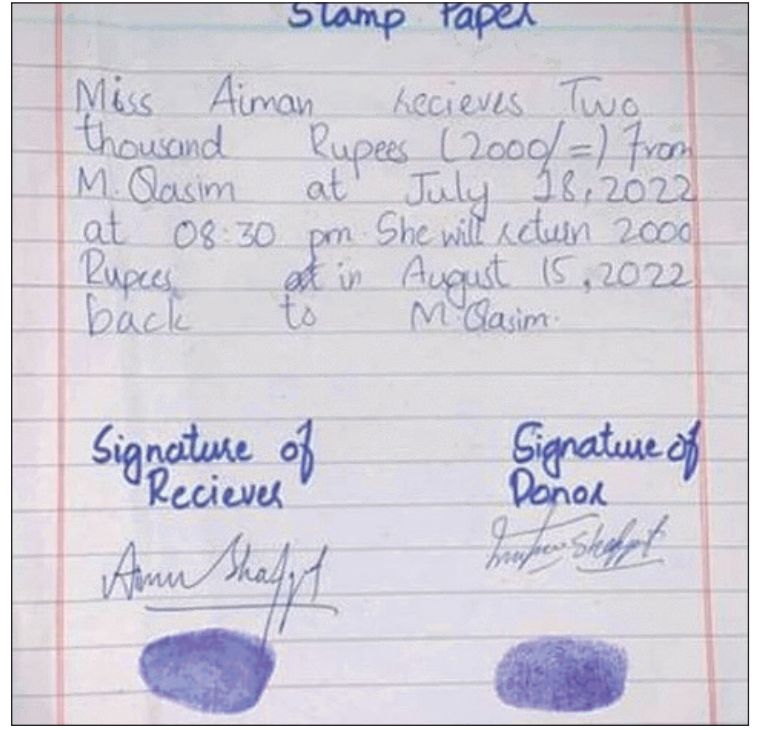 Stamp Paper
Miss Aiman Recieves Two
thousand Rupees (2000/=) From
M. Qasim at July 18, 2022
at 08:30 pm. She will return 2000
Rupees in August 15, 2022
back to M. Qasim.
Signature of
Reciever
Signature of
Donor
Shafqat